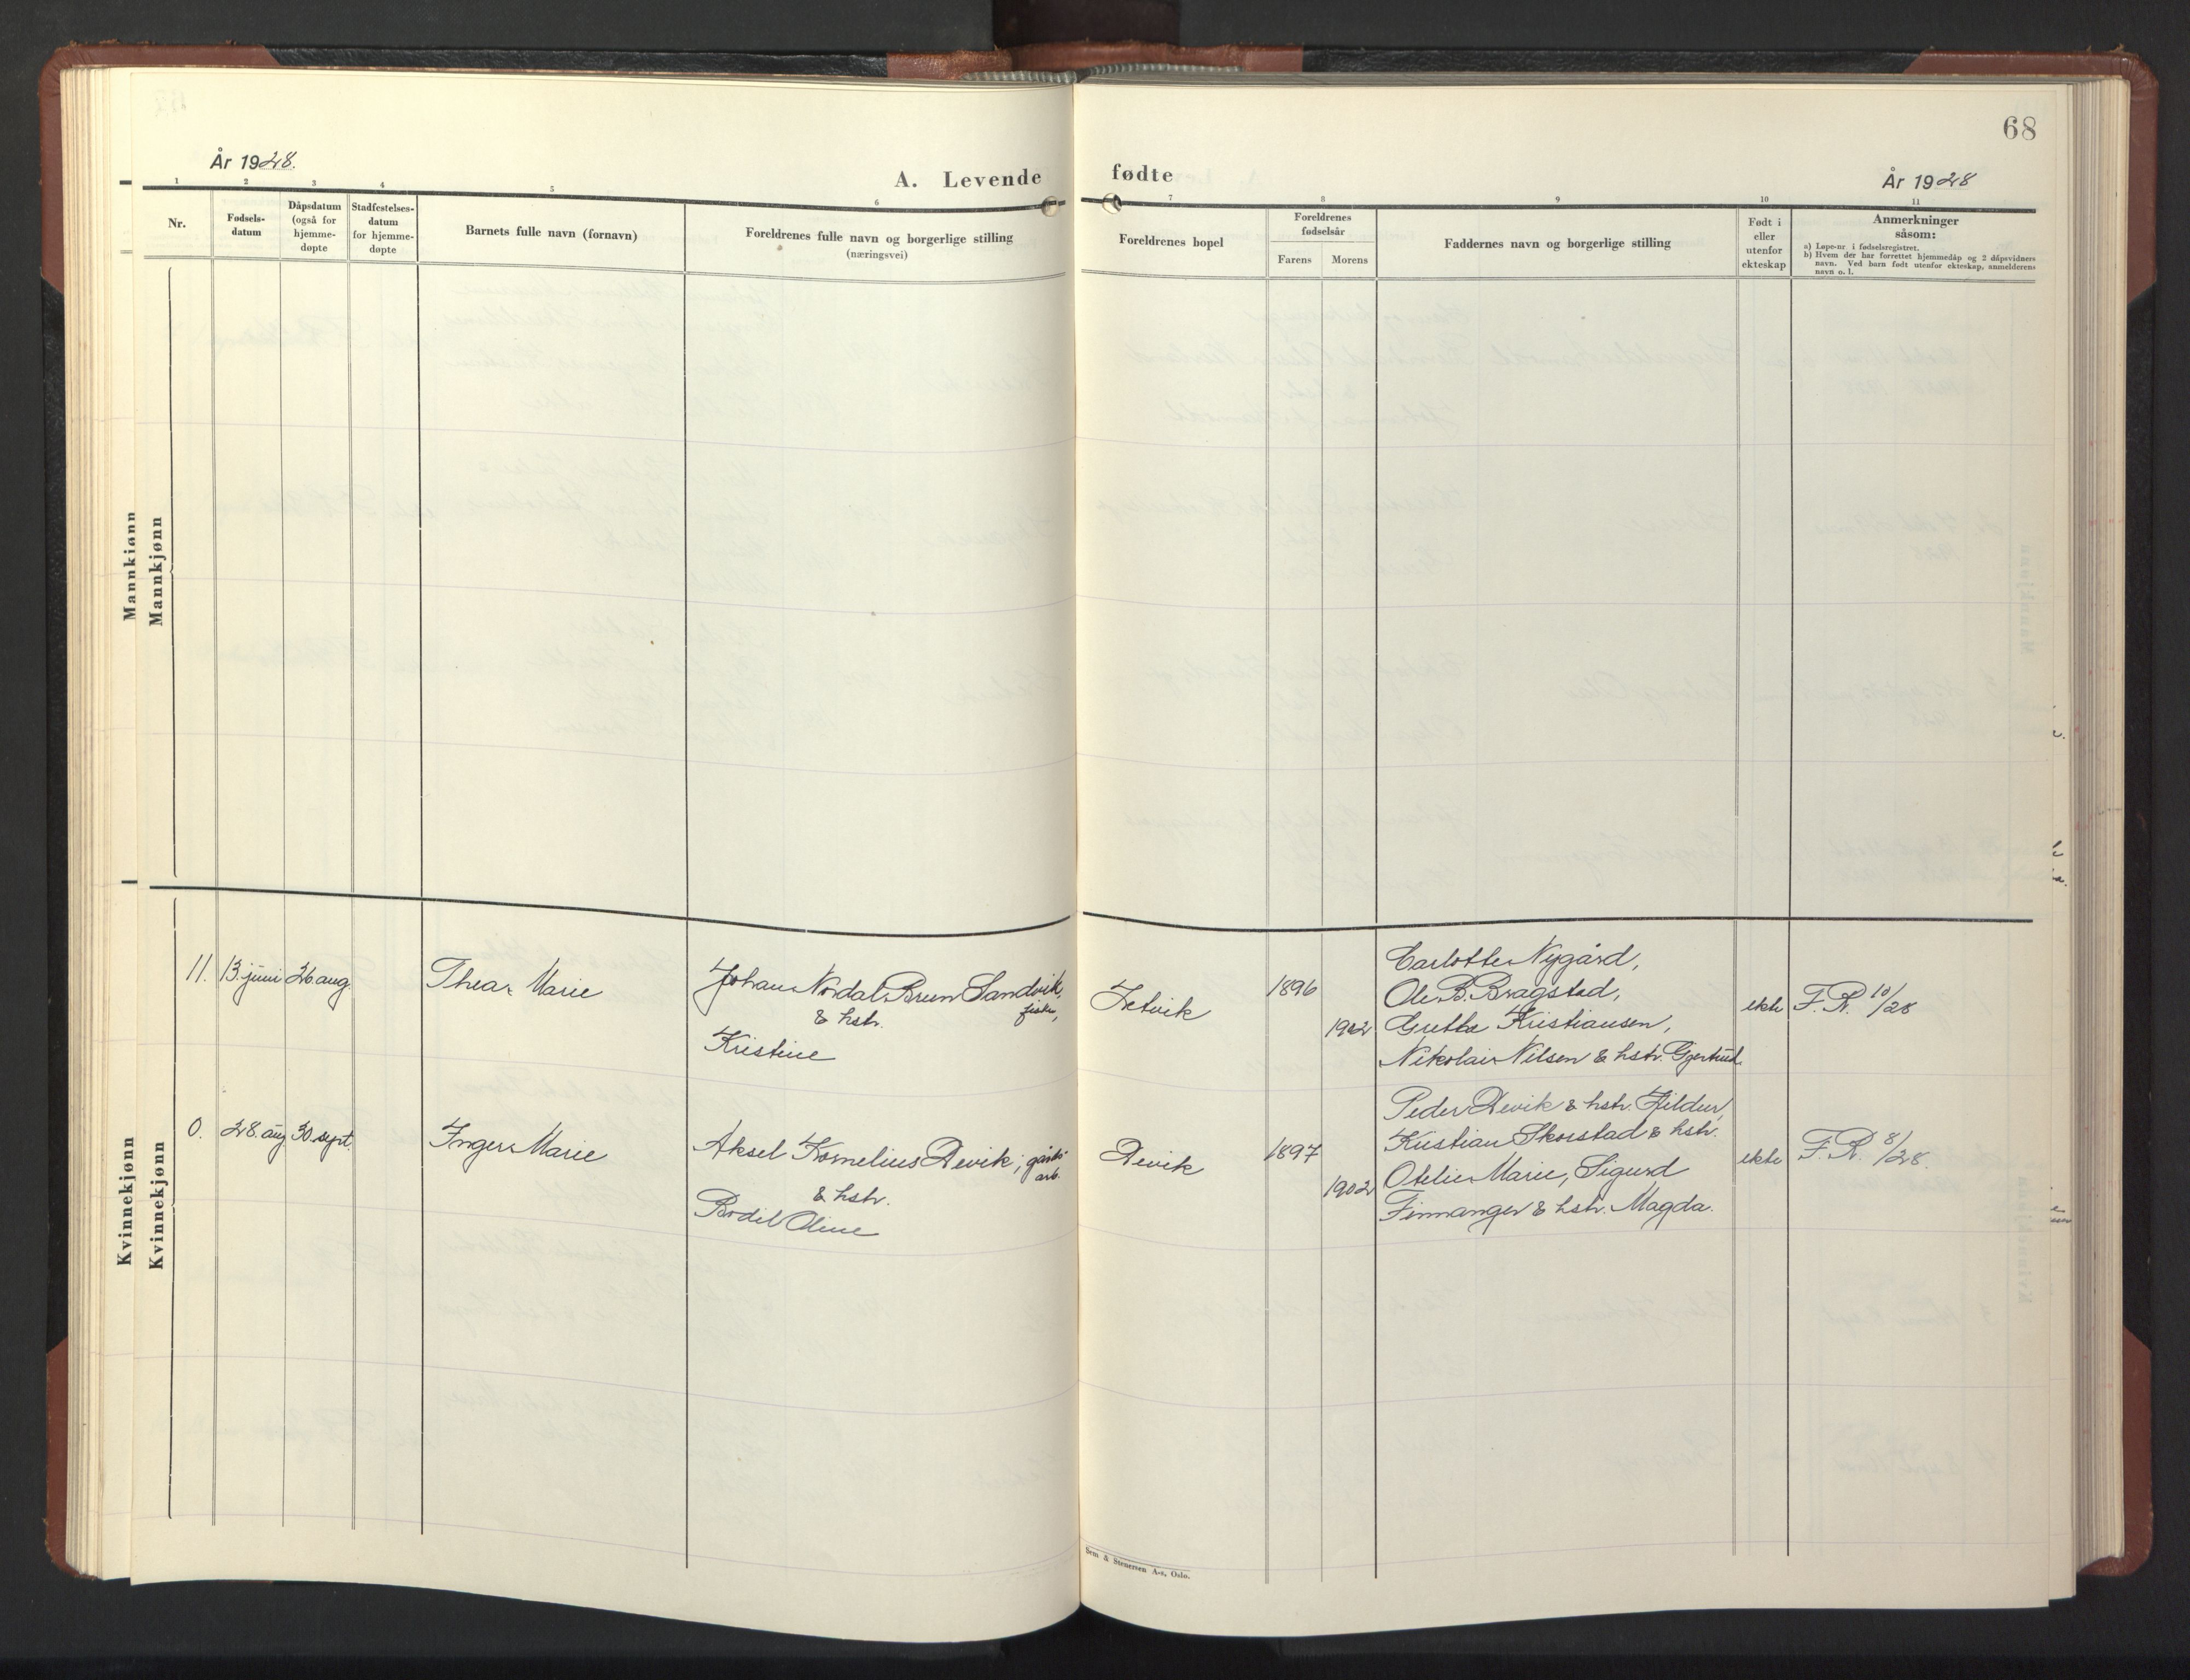 68
År 1928.
A. Levende
fødte
År 1928
1 2 3 4 5 6 7 8 9 10 11
Nr.
Fødsels-
datum
Dåpsdatum
(også for
hjemme-
døpte
Stadfestelses-
datum
for hjemme-
døpte
Barnets fulle navn (fornavn)
Foreldrenes fulle navn og borgerlige stilling
(næringsvei)
Foreldrenes bopel
Foreldrenes
fødselsår
Farens
Morens
Faddernes navn og borgerlige stilling
Født i
eller
utenfor
ekteskap
Anmerkninger
såsom:
a) Løpe-nr i fødselsregistret.
b) Hvem der har forrettet hjemmedåp og 2 dåpsvidners
navn. Ved barn født utenfor ekteskap, anmelderens
navn o. l.
Mannkjønn
Mannkjønn
Kvinnekjønn
Kvinnekjønn
11. 13. juni 26. aug.
Thea Marie
Johan Nordal Brun Sandvik,
fisker,
& hstr.
Kristine
Setvik
1896
1902
Carlotte Nygård,
Ole B. Bragstad,
Grethe Kristiansen,
Nikolai Nilsen & hstr. Gjertrud.
ekte
F. R. 10/28
0. 28. aug. 30. sept.
Inger Marie
Aksel Kornelius Devik, gårds-
arb.
& hstr.
Bodil Oline
Devik
1897
1902
Peder Devik & hstr. Hildur,
Kristian Skorstad & hstr.
Otelie Marie, Sigurd
Finnanger & hstr. Magda.
ekte
F. R. 8/28.
Sem & Stenersen A-s, Oslo.